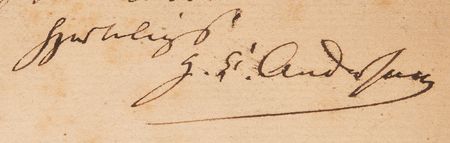 Hjerteligst
H. C. Andersen